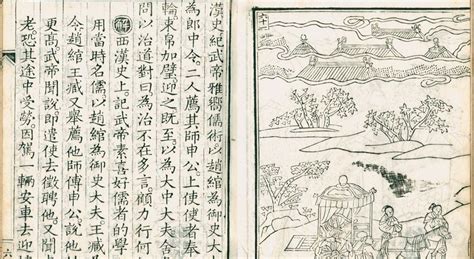 漢史紀武帝雅嚮儒術以趙綰為御史大
為郎中令二人薦其師申公上使使者奉
輪束帛加璧迎之既至以為大中大夫舍
問以治道對曰為治不在多言顧力行何
解西漢史上記武帝素喜好儒者的學
用當時名儒以趙綰為御史大夫王臧為
令趙綰王臧又舉薦他師傅申公說他
更高武帝聞說即遣使去徵聘他又聞
老恐其途中受勞因駕一輛安車去迎
六